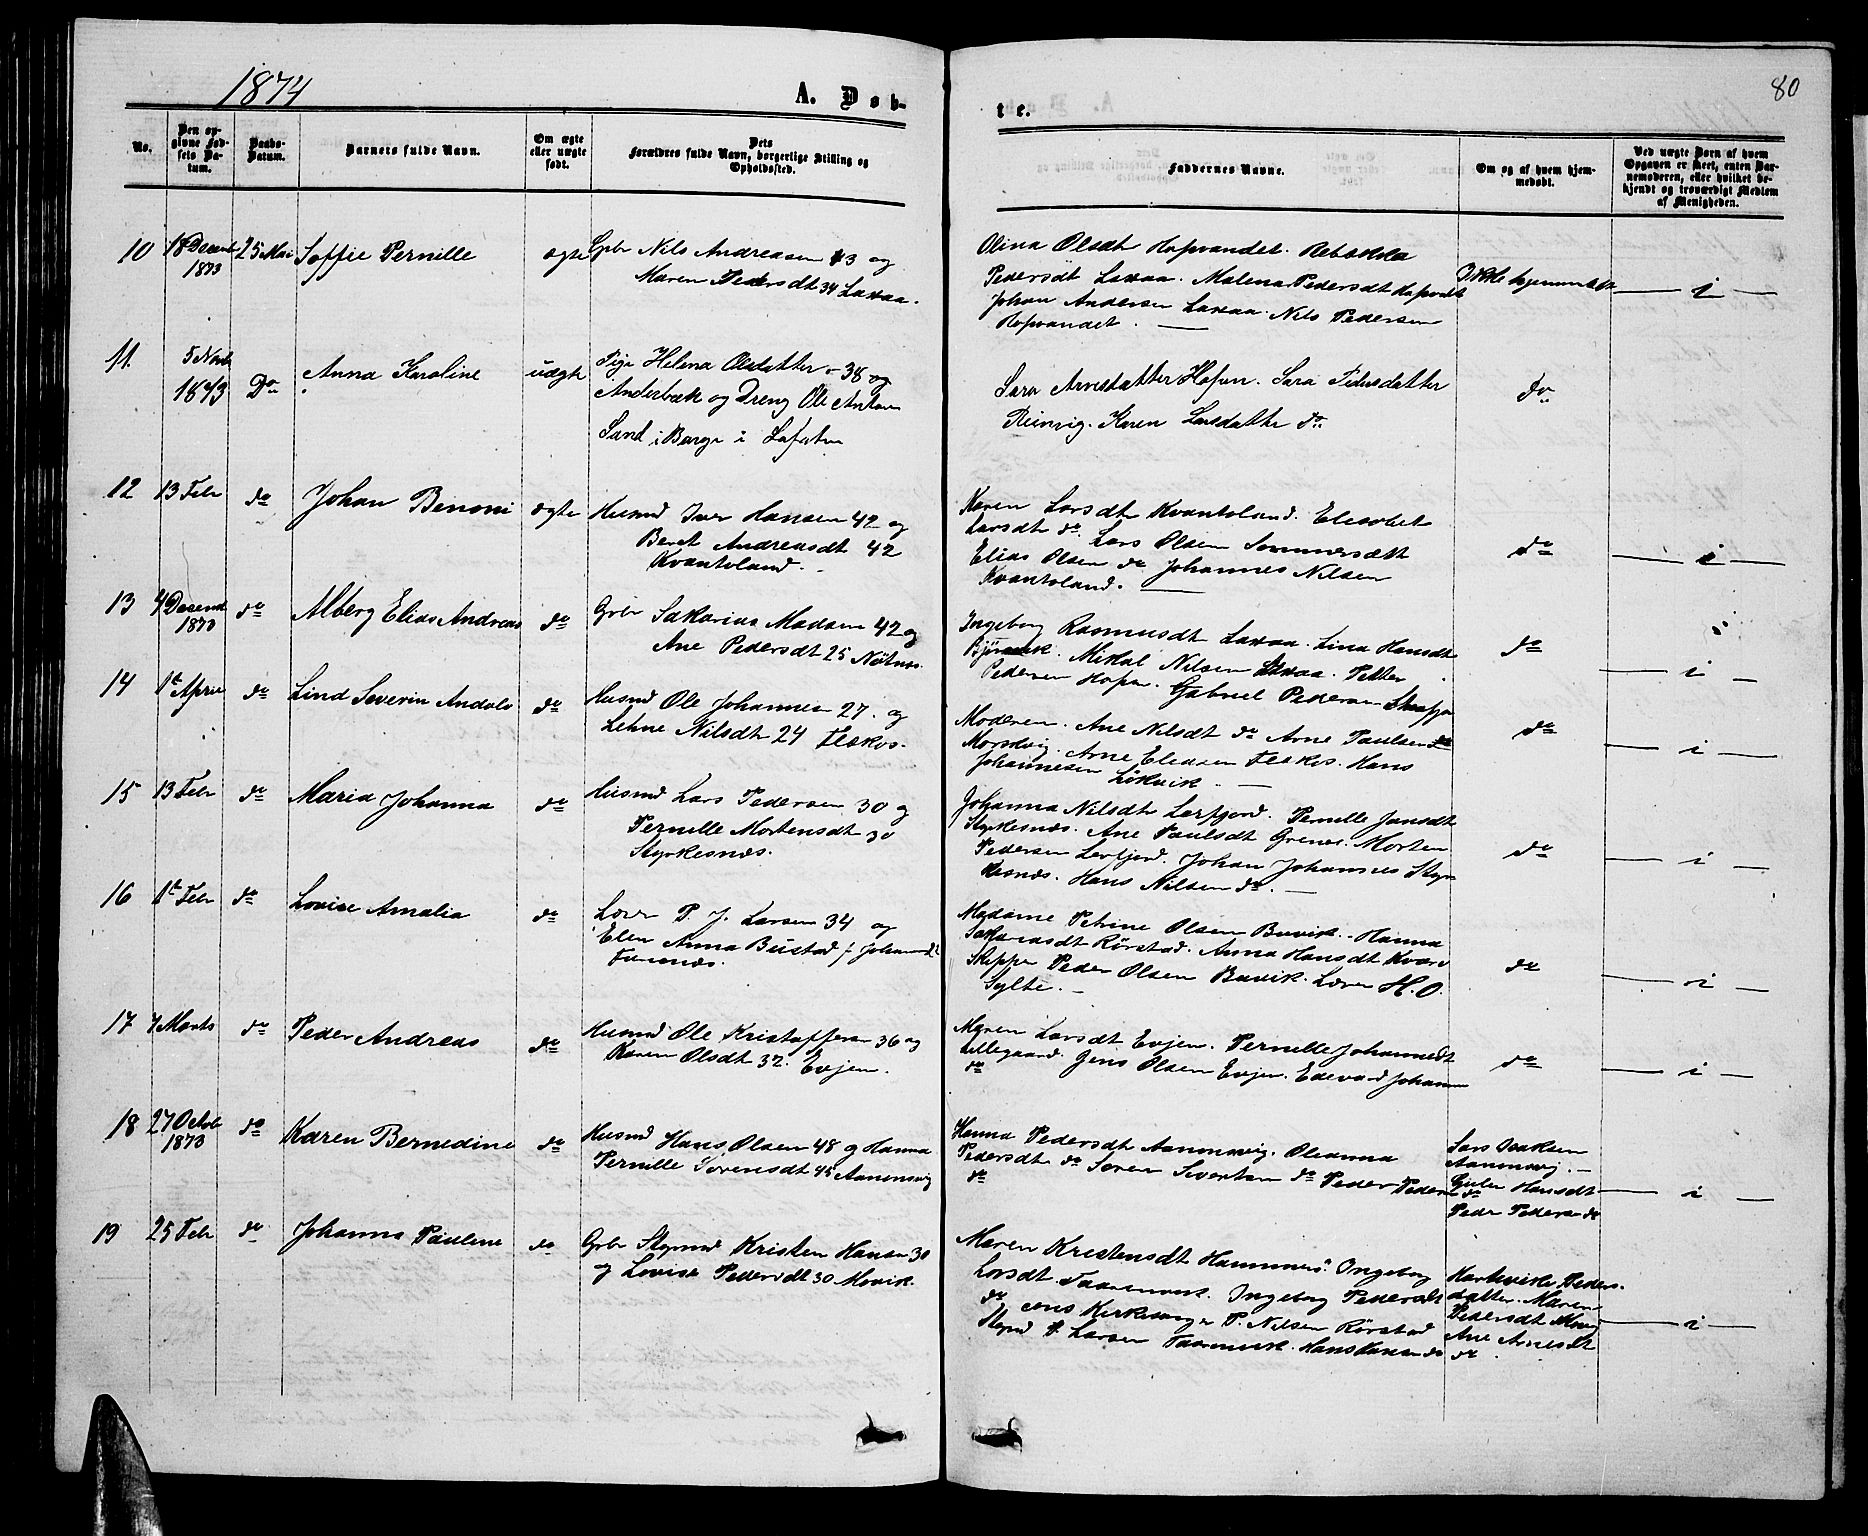 1874
A. Døb-
te.
80
No.
Den op-
givne Fød-
sels Da-
tum.
Daabs-
Datum.
Barnets fulde Navn.
Om ægte
eller uægte
født.
Dets
Forældres fulde Navn, borgerlige Stilling og
Opholdssted.
Faddernes Navne.
Om og af hvem hjem-
medøbt.
Ved uægte Børn af hvem
Opgaven er skeet, enten Bar-
nemoderen, eller hvilket be-
kjendt og troværdigt Medlem
af Menigheden.
10 18 Decemb 25 Mai Soffie Pernille ægte Gbr Nils Andreasen 43 og
1873 Maren Pedersdt 34 Laxaa.
Olina Olsdt Hopvandet. Rebækka
Pedersdt Laxaa. Malena Pedersdt Hopvandt
Johan Andersen Laxaa. Nils Pedersen
Hopvandet. —
Ikke hjemmedøbt — i —
11. 5 Novb 1873 Do Anna Karoline uægte Pige Helena Olsdatter - 38 og
Anderbæk og Dreng Ole Anton
Sand i Borge i Lofoten
Sara Arnesdatter Hopen. Sara Pedersdatter
Reinvig. Karen Larsdatter do
do
12 13 Febr do Johan Benoni ægte Husmd Iver Hansen 42 og
Beret Andreasdt 42
Kvantoland.
Karen Larsdt Kvantoland. Elesabet
Larsdt do. Lars Olsen Sommersætt
Elias Olsen do Johannes Nilsen
Kvantoland. —
do — i —
13 4 Decemb 1873 do Alberg Elias Andreas do Gbr Sakarias Madsen 42 og
Ane Pedersdt 25 Nøtnes.
Ingeborg Rasmusdt Laxaa. Lina Hansdt
Bjørnvik. Mikal Nilsen Laxaa. Petter
Pedersen Hopen. Gabriel Pedersen
do — i —
14 1te April do Lind Severin Andols do Husmd Ole Johannesen 27. og
Lehne Nilsdt 24 Flekos.
Moderen. Ane Nilsdt do Arne Paulsen do
Morsvig. Arne Eleasen Flekos. Hans
Johannesen Løkvik. —
do — i —
15 13 Febr do Maria Johanna do Husmd Lars Pedersen 30 og
Pernille Mortensdt 30
Styrkesnæs.
Johanna Nilsdt Lerfjord. Pernille Jensdt
Styrkesnæs. Ane Paulsdt Grenes. Morten
Pedersen Lerfjord. Johan Johannes Styr
kesnæs. Hans Nilsen do. —
do — i —
16 1te Febr do Lovise Amalia do Lærer P. J. Larsen 34 og
Elen Anna Bustad f. Johannesd
Madame Petrine Olsen Buvik. Hanna
Sakariasdt Rørstad. Anna Hansdt Kvarv
Skipper Peder Olsen Buvik. Lærer H. O.
Sylte. —
do — i —
17 7 Marts do Peder Andreas do Husmd Ole Kristoffersen 36 og
Karen Olsdt 32. Evjen.
Maren Larsdt Evjen. Pernille Johannesdt
Lillegaard. Jens Olsen Evjen. Edevard Johannesen
do
do — i —
18 27 Octob 1873 do Karen Bernedine do Husmd Hans Olsen 48 og Hanna
Pernille Sørensdt 45 Aanonsvig
Hanna Pedersdt Aanonsvig. Oleanna
Pedersdt do Søren Sivertsen do Peder Pedersen
do
Lars Isaksen
Aanonsvig. —
Hansdt
Peder Pedersen do
— i —
19 25 Febr do Johanna Pauline do Gbr Styrmd Kristen Hansen 30
og Lovise Pedersdt 30 Movik.
Maren Kristensdt Hammnes. Ingeborg
Larsdt Taarnvik. Ingeborg Pedersdt
do cons Kirkesanger P. Nilsen Rørstad
Styrmd Larsen Taarnvik. Hans Hansen do
Hartvikke Peders-
datter. Maren
Pedersdt Movig
Ane Arnesdt
do
— i —